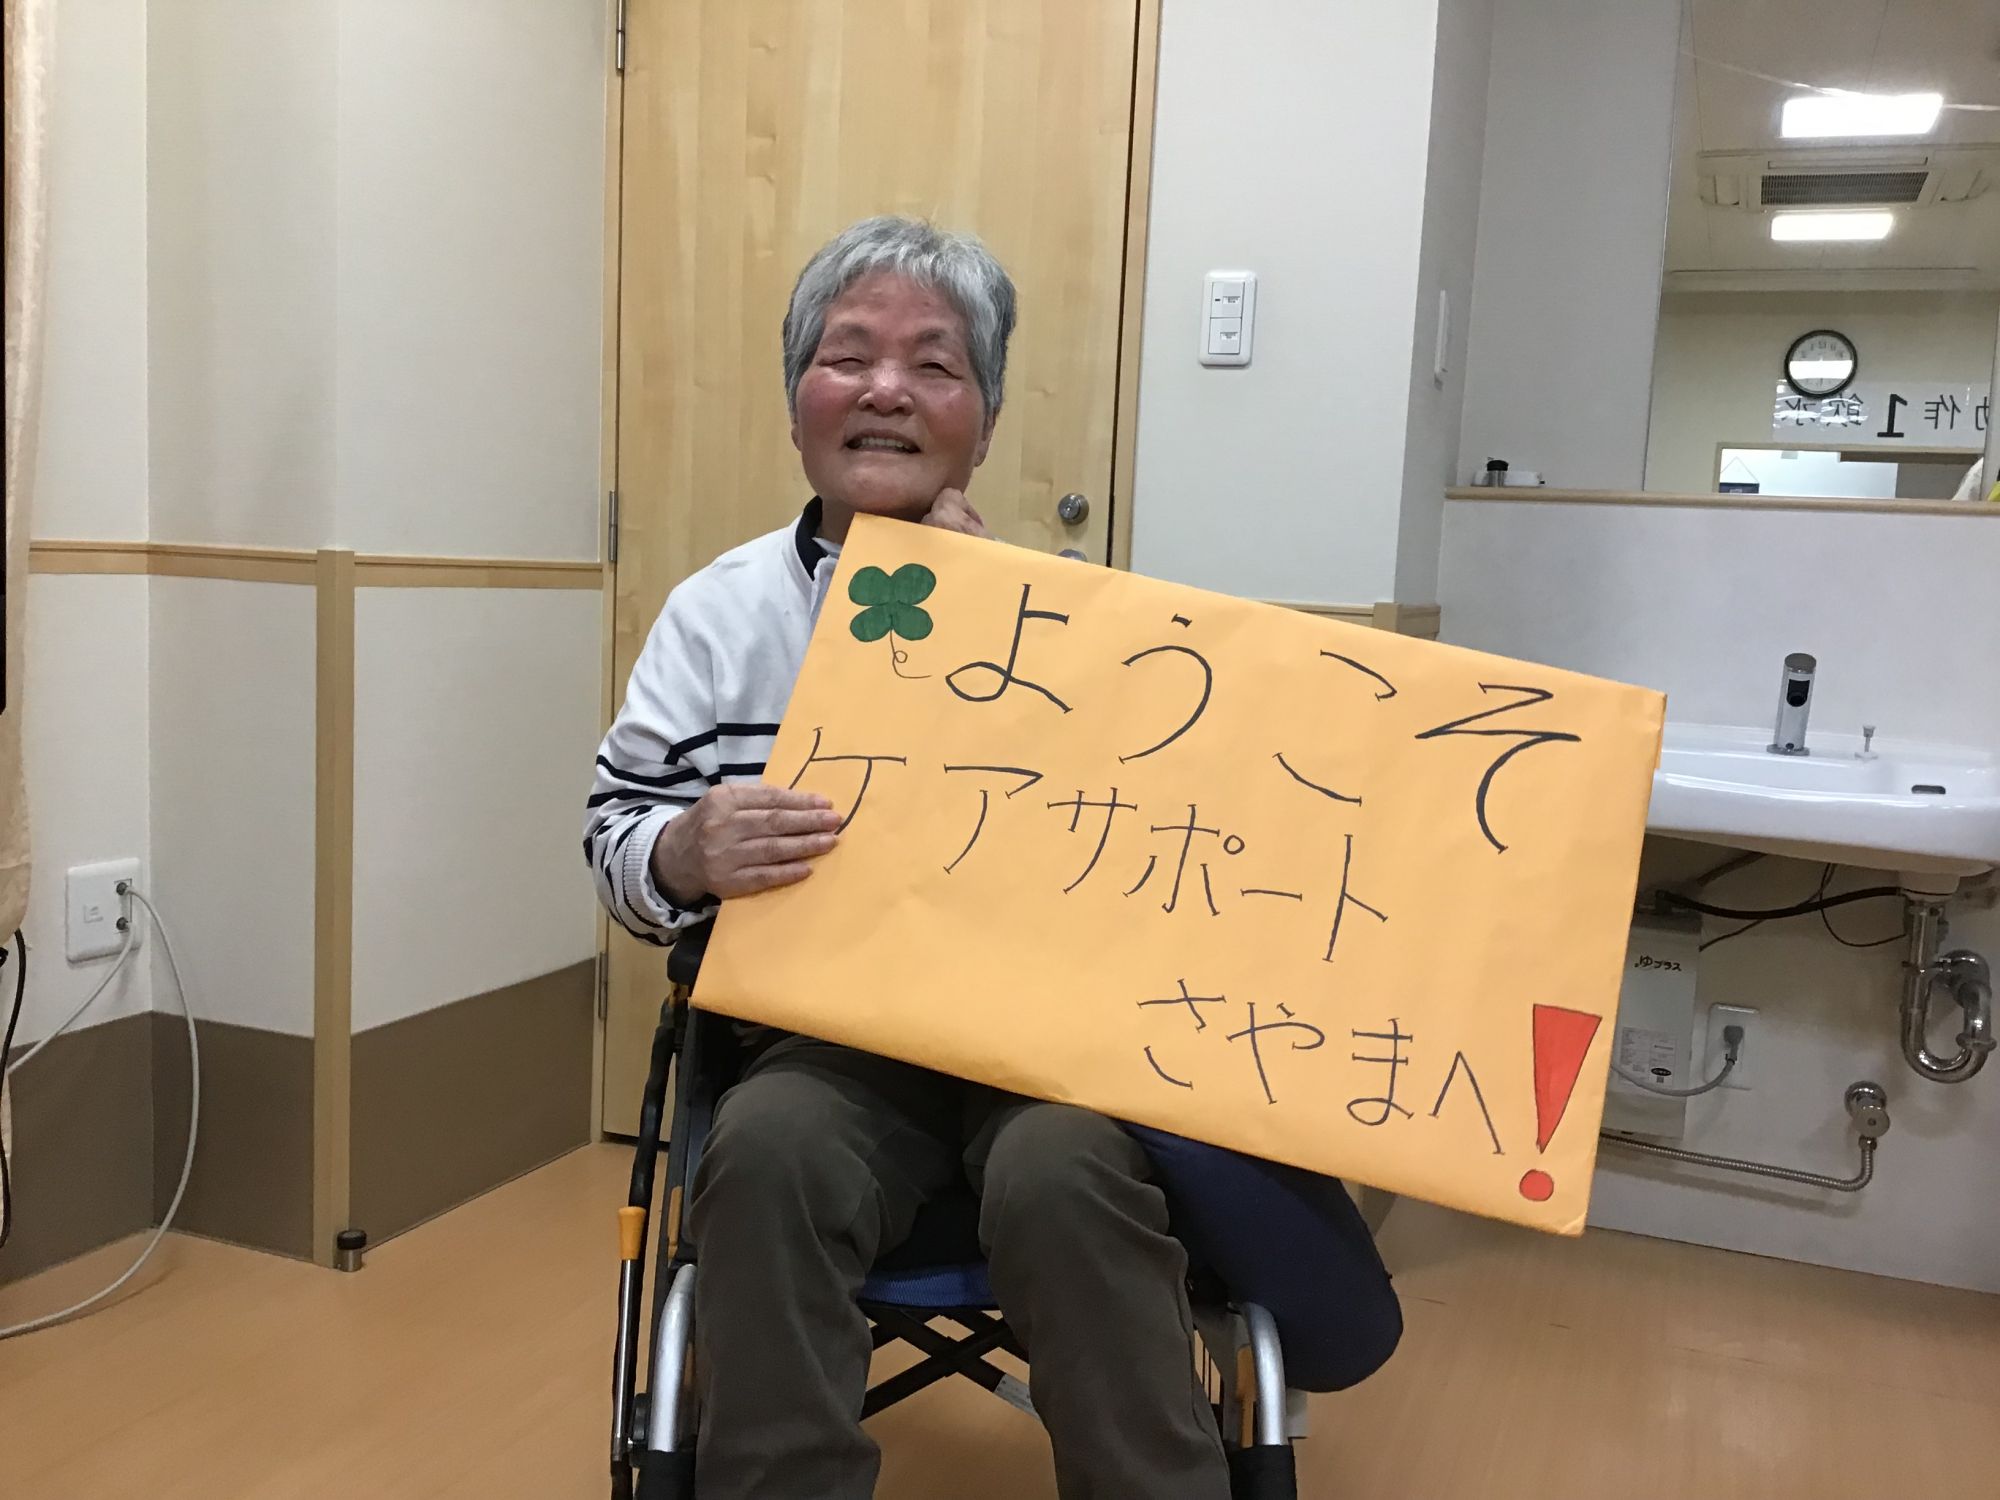 ようこそ
ケアサポート
さやまへ!
ゆプラス
作1飲水